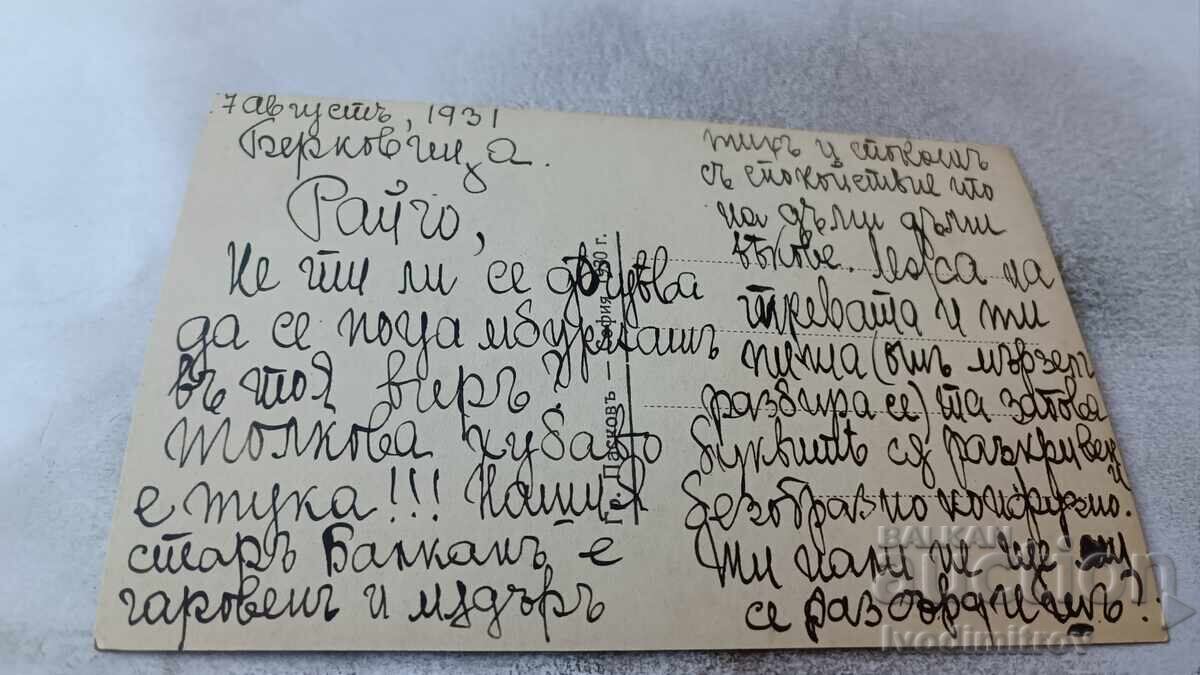 7 августъ, 1931
Берковица.
Райчо,
Не ти ли се дощѣва
да се поца
въ тоя виръ?
Толкова хубаво
е тука!!! Нашия
старъ Балканъ е
чаровенъ и мѫдъръ
тихъ и спокоенъ
съ спокойствие що
на дълги дълги
вѣкове. Легса на
тревата и ти
пиша (отъ мързелъ
разбира се) та затова
буквитѣ сѫ разкривени
безобразно конфузно.
Ти нали не ще ми
се разсърдишъ?
Гр. Пасковъ — София 1930 г.
BALKAN
auction
Ivodimitrov